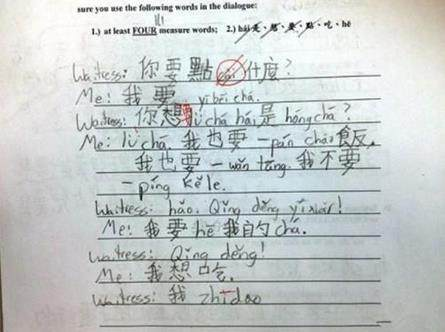 sure you use the following words in the dialogue:
1.) at least FOUR measure words; 2.) hái 是、想、要、點、吃、hē
Waitress: 你要點 什麼?
Me: 我要 yìbēi chá.
Waitress: 你想要lǜchá hái是 hóngchá?
Me: lǜ chá. 我也要 一pán chǎo飯.
我也要 一wǎn tāng. 我不要
一píng kělè.
Waitress: hǎo. Qǐng děng yíxiàr!
Me: 我要 hē 我自的 chá.
Waitress: Qǐng děng!
Me: 我想吃.
Waitress: 我 zhīdao